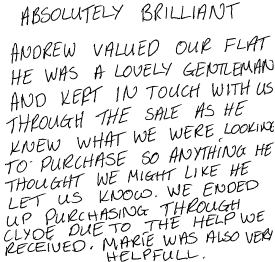 ABSOLUTELY BRILLIANT
ANDREW VALUED OUR FLAT
HE WAS A LOVELY GENTLEMAN
AND KEPT IN TOUCH WITH US
THROUGH THE SALE AS HE
KNEW WHAT WE WERE LOOKING
TO PURCHASE SO ANYTHING HE
THOUGHT WE MIGHT LIKE HE
LET US KNOW. WE ENDED
UP PURCHASING THROUGH
CLYDE DUE TO THE HELP WE
RECEIVED. MARIE WAS ALSO VERY
HELPFULL.